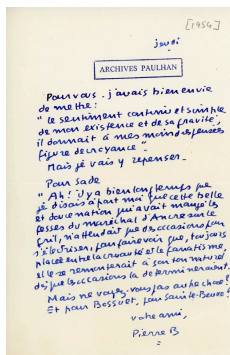 [1954]
jeudi
ARCHIVES PAULHAN
Pour vous. j'avais bien envie
de mettre :
"le sentiment continu et simple
de mon existence et de sa gravité,
il donnait à mes moindres pensées
figure de croyance".
Mais je vais y repenser_
Pour Sade
"Ah! il y a bien longtemps que
je disais à part moi que cette belle
et douce nation qui avait mangé les
fesses du maréchal d'Ancre sur le
gril, n'attendait que des occasions pour
s'électriser, pour faire voir que, toujours
placée entre la cruauté et le fanatisme,
elle se remonterait à son ton naturel
dès que les occasions la détermineraient.
Mais ne voyez-vous pas autre chose?
Et pour Bossuet, pour Sainte-Beuve?
votre ami,
Pierre B